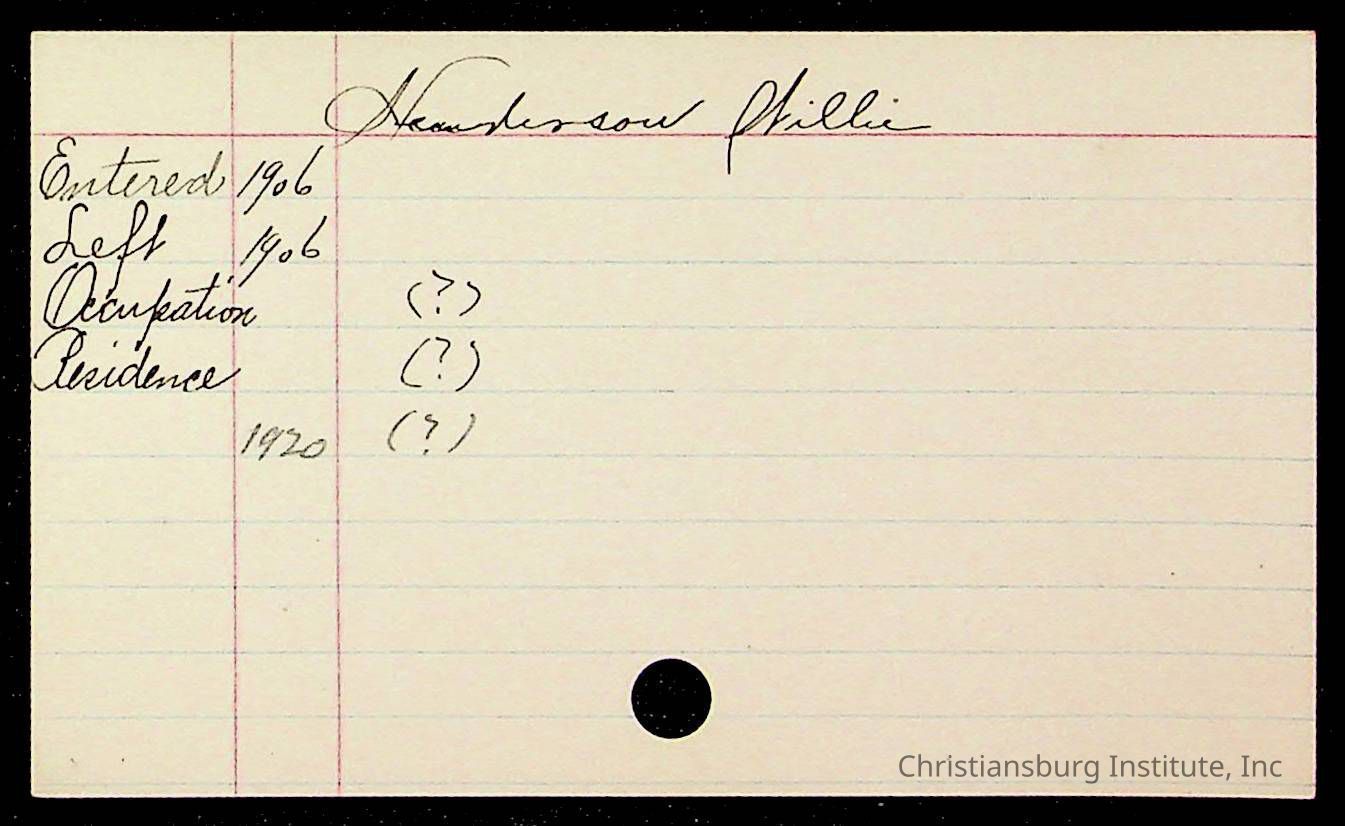 Henderson Willie
Entered 1906
Left 1906
Occupation (?)
Residence (?)
1920 (?)
Christiansburg Institute, Inc